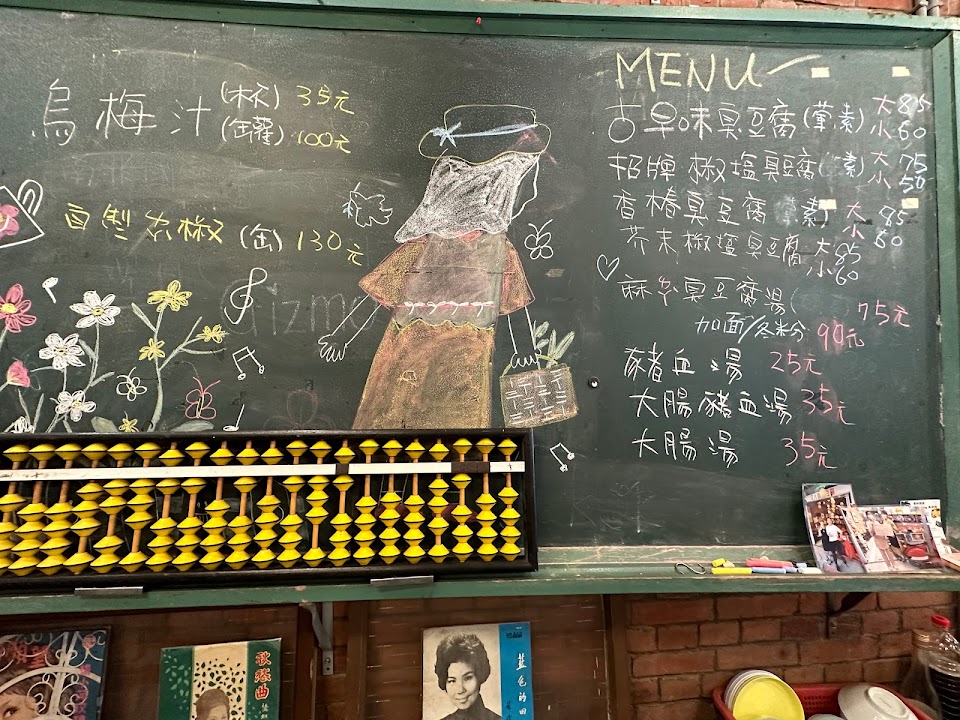 烏梅汁 (杯) 35元
(台罐) 100元
自製大椒 (缶) 130元
Gizmo
MENU
古早味臭豆腐 (葷素) 大85 小60
招牌椒塩臭豆腐 (素) 大75 小50
香椿臭豆腐 素) 大85 小60
芥末椒塩臭豆腐 大85 小60
麻辣臭豆腐湯 ( 75元
加面/冬粉 90元
豬血湯 25元
大腸豬血湯 35元
大腸湯 35元
歌選曲
藍色的